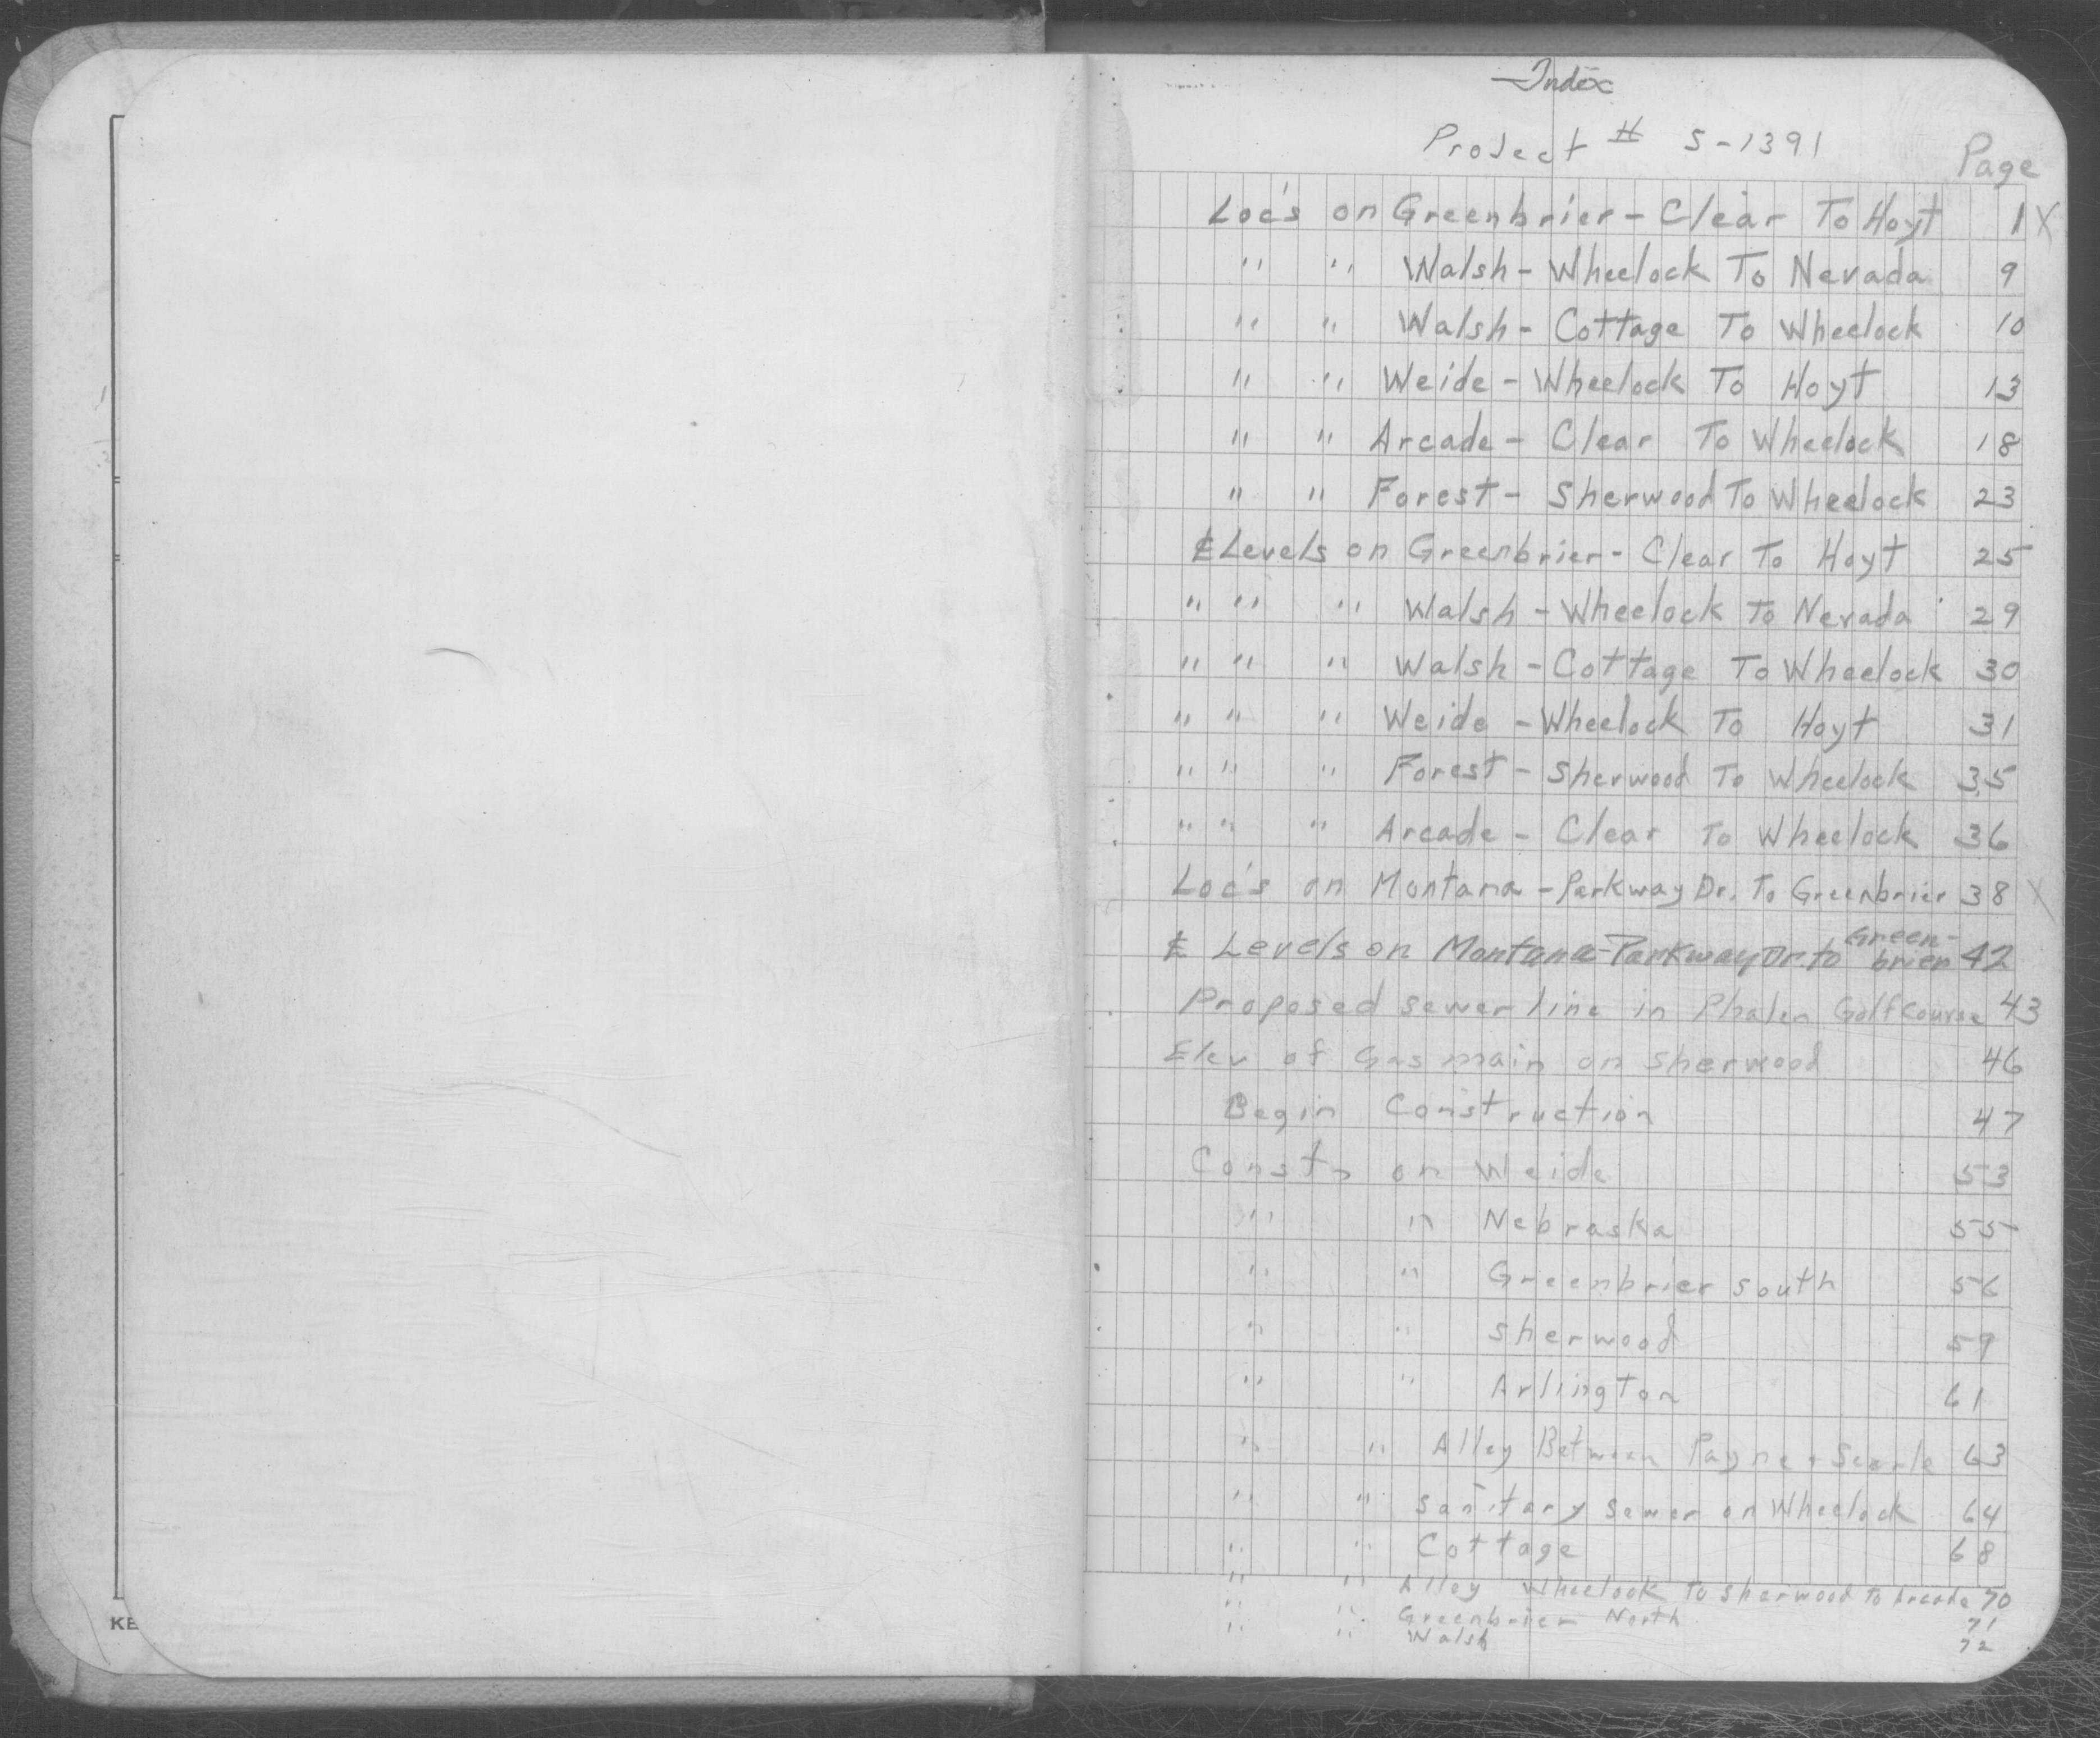 Index
Project # S-1391
Page
Loc's on Greenbrier - Clear To Hoyt 1 X
" " Walsh - Wheelock To Nevada 9
" " Walsh - Cottage To Wheelock 10
" " Weide - Wheelock To Hoyt 13
" " Arcade - Clear To Wheelock 18
" " Forest - Sherwood To Wheelock 23
℄ Levels on Greenbrier - Clear To Hoyt 25
" " " Walsh - Wheelock To Nevada 29
" " " Walsh - Cottage To Wheelock 30
" " " Weide - Wheelock To Hoyt 31
" " " Forest - Sherwood To Wheelock 35
" " " Arcade - Clear To Wheelock 36
Loc's on Montana - Parkway Dr. To Greenbrier 38 X
℄ Levels on Montana - Parkway Dr. to Green-
brier 42
Proposed sewer line in Phalen Golf Course 43
Elev of Gas main on Sherwood 46
Begin Construction 47
Const, on Weide 53
" " Nebraska 55
" " Greenbrier south 56
" " Sherwood 59
" " Arlington 61
" " Alley Between Payne + Searle 63
" " Sanitary Sewer on Wheelock 64
" " Cottage 68
" " Alley Wheelock to Sherwood to Arcade 70
" " Greenbrier North 71
" " Walsh 72
KE